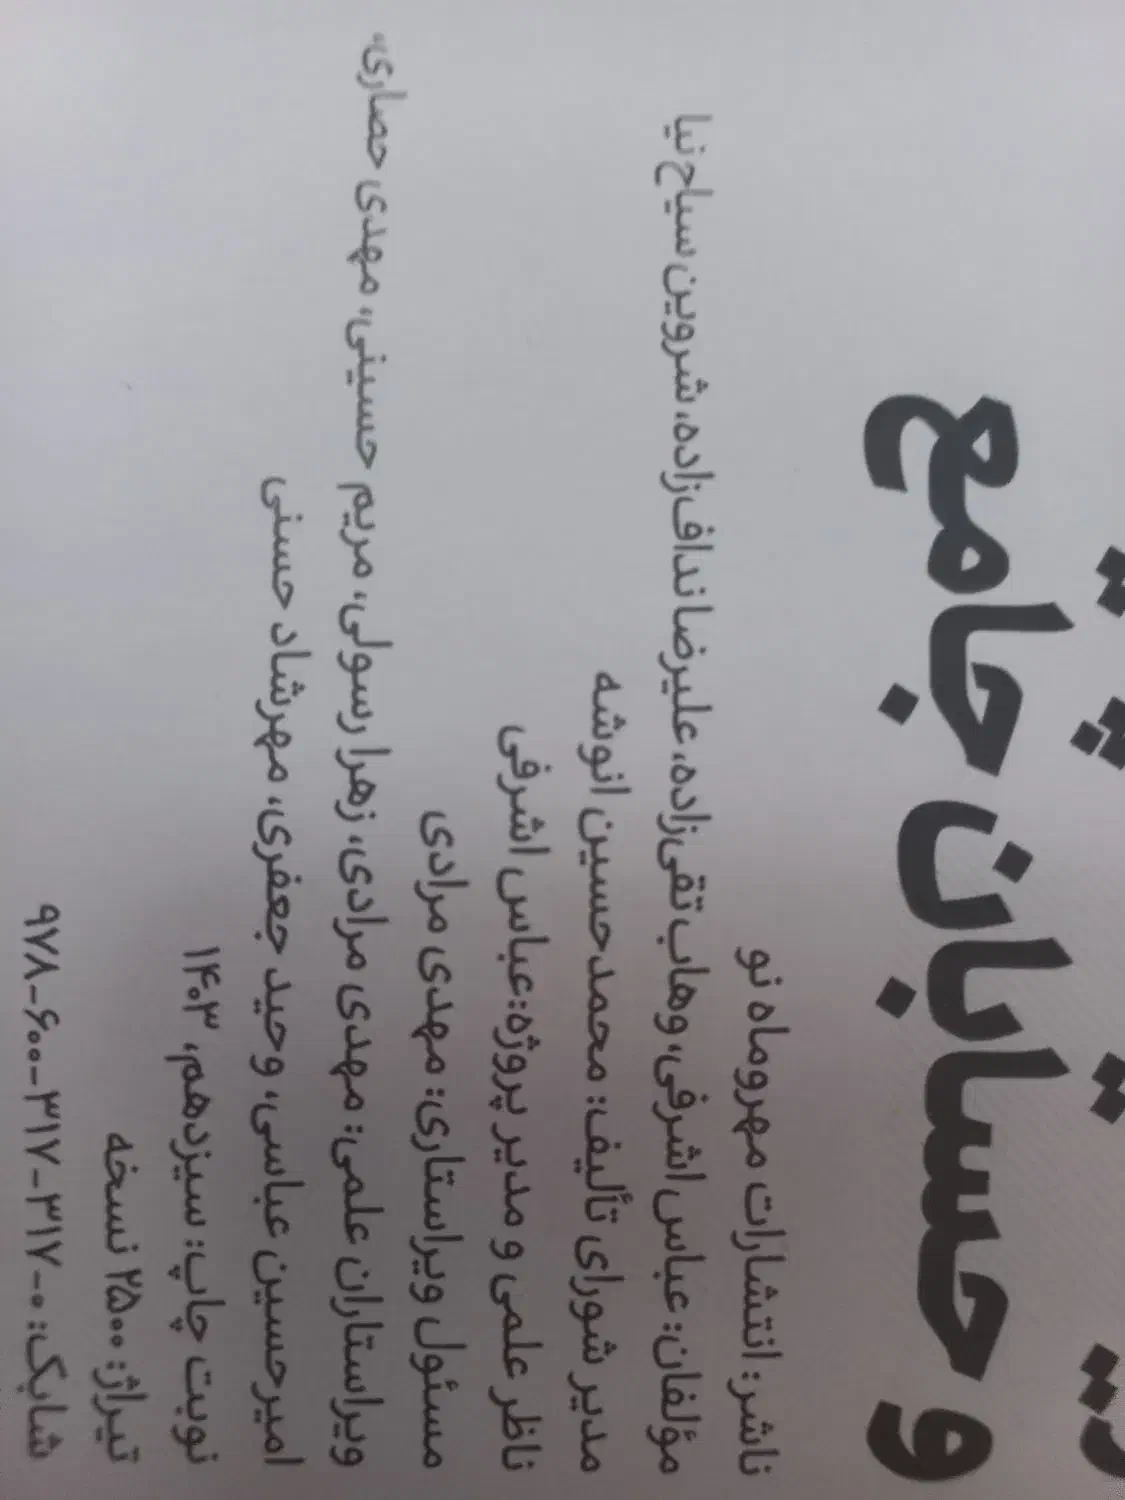 و حسابان جامع
ناشر: انتشارات مهروماه نو
مؤلفان: عباس اشرفی، وهاب تقی‌زاده، علیرضا نداف‌زاده، شروین سیاح‌نیا
مدیر شورای تألیف: محمدحسین انوشه
ناظر علمی و مدیر پروژه: عباس اشرفی
مسئول ویراستاری: مهدی مرادی
ویراستاران علمی: مهدی مرادی، زهرا رسولی، مریم حسینی، مهدی حصاری،
امیرحسین عباسی، وحید جعفری، مهرشاد حسنی
نوبت چاپ: سیزدهم، ۱۴۰۳
تیراژ: ۲۵۰۰ نسخه
شابک: ۰-۳۱۷-۳۱۷-۶۰۰-۹۷۸